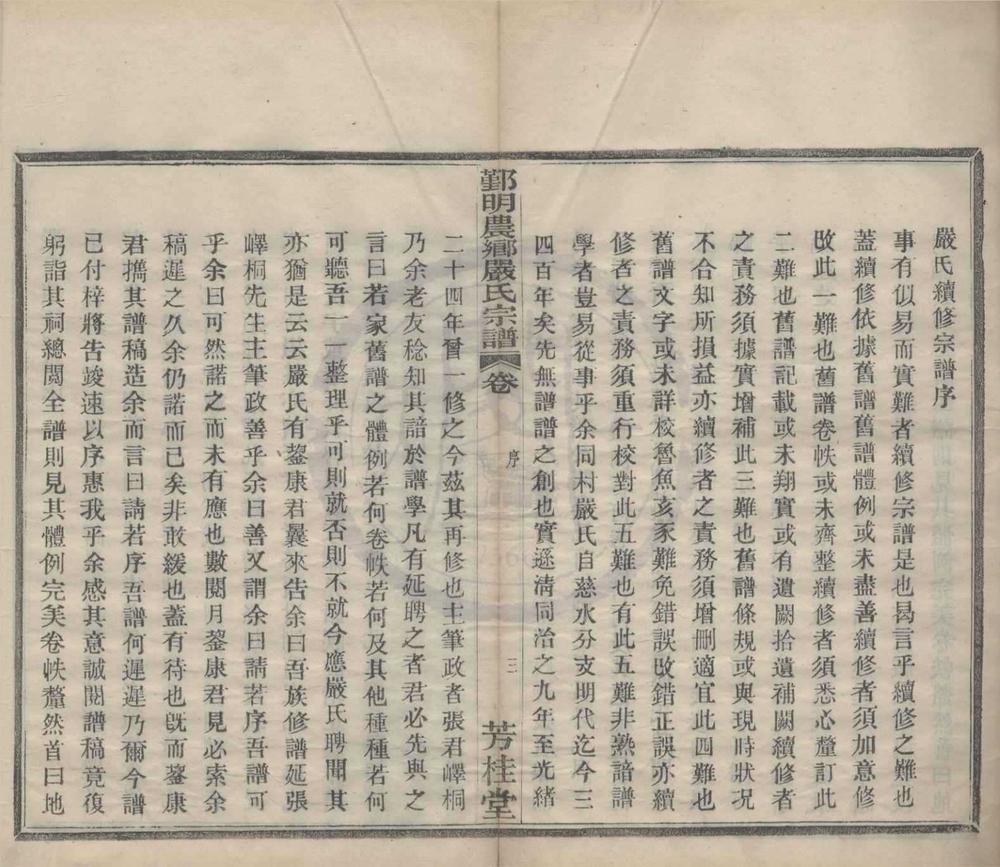 嚴氏續修宗譜序
事有似易而實難者續修宗譜是也曷言乎續修之難也
蓋續修依據舊譜舊譜體例或未盡善續修者須加意修
改此一難也舊譜卷帙或未齊整續修者須悉心釐訂此
二難也舊譜記載或未翔實或有遺闕拾遺補闕續修者
之責務須據實增補此三難也舊譜條規或與現時狀況
不合知所損益亦續修者之責務須增刪適宜此四難也
舊譜文字或未詳校魯魚亥豕難免錯誤改錯正誤亦續
修者之責務須重行校對此五難也有此五難非熟諳譜
學者豈易從事乎余同村嚴氏自慈水分支明代迄今三
四百年矣先無譜譜之創也實遜淸同治之九年至光緖
鄞明農鄉嚴氏宗譜 卷 序 三 芳桂堂
二十四年曾一修之今茲其再修也主筆政者張君嶧桐
乃余老友稔知其諳於譜學凡有延聘之者君必先與之
言曰若家舊譜之體例若何卷帙若何及其他種種若何
可聽吾一一整理乎可則就否則不就今應嚴氏聘聞其
亦猶是云云嚴氏有蓥康君曩來告余曰吾族修譜延張
嶧桐先生主筆政善乎余曰善又謂余曰請若序吾譜可
乎余曰可然諾之而未有應也數閱月蓥康君見必索余
稿遲之久余仍諾而已矣非敢緩也蓋有待也旣而蓥康
君攜其譜稿造余而言曰請若序吾譜何遲遲乃爾今譜
已付梓將告竣速以序惠我乎余感其意誠閱譜稿竟復
躬詣其祠總閱全譜則見其體例完美卷帙釐然首曰地